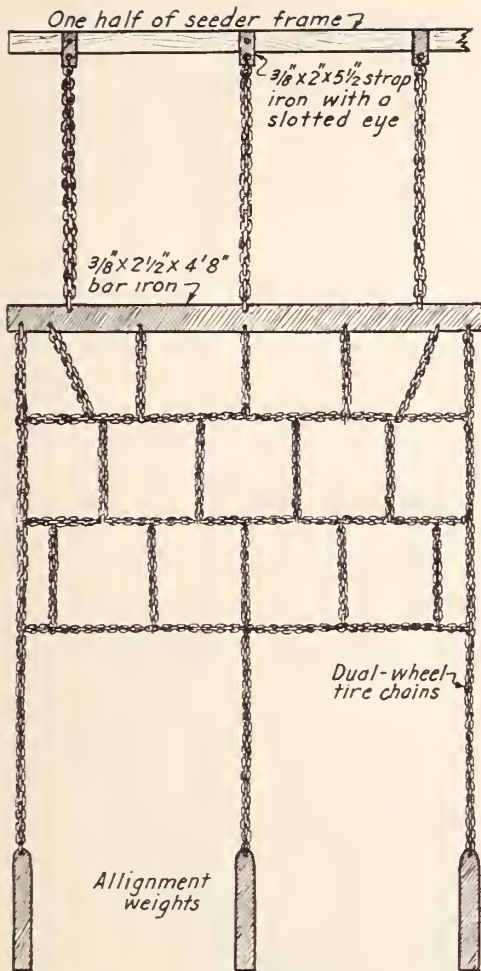 One half of seeder frame
3/8" x 2" x 5 1/2" strap
iron with a
slotted eye
3/8" x 2 1/2" x 4'8"
bar iron
Dual-wheel
tire chains
Allignment
weights